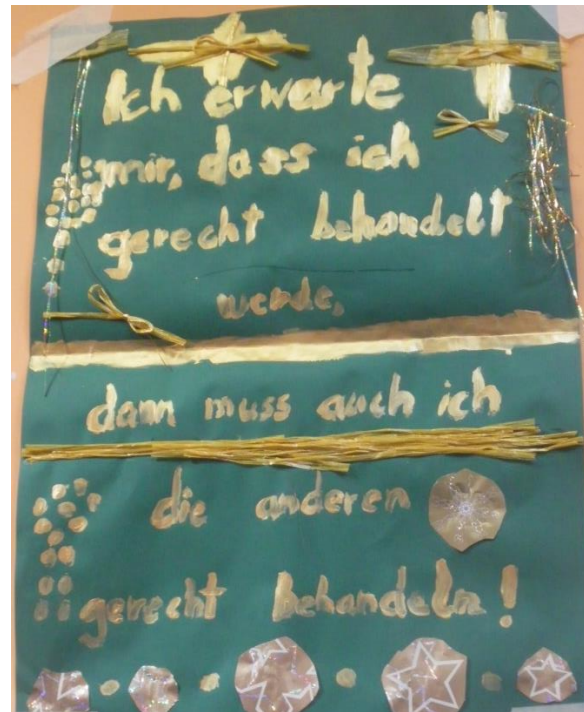 Ich erwarte
mir, dass ich
gerecht behandelt
werde,
dann muss auch ich
die anderen
gerecht behandeln!